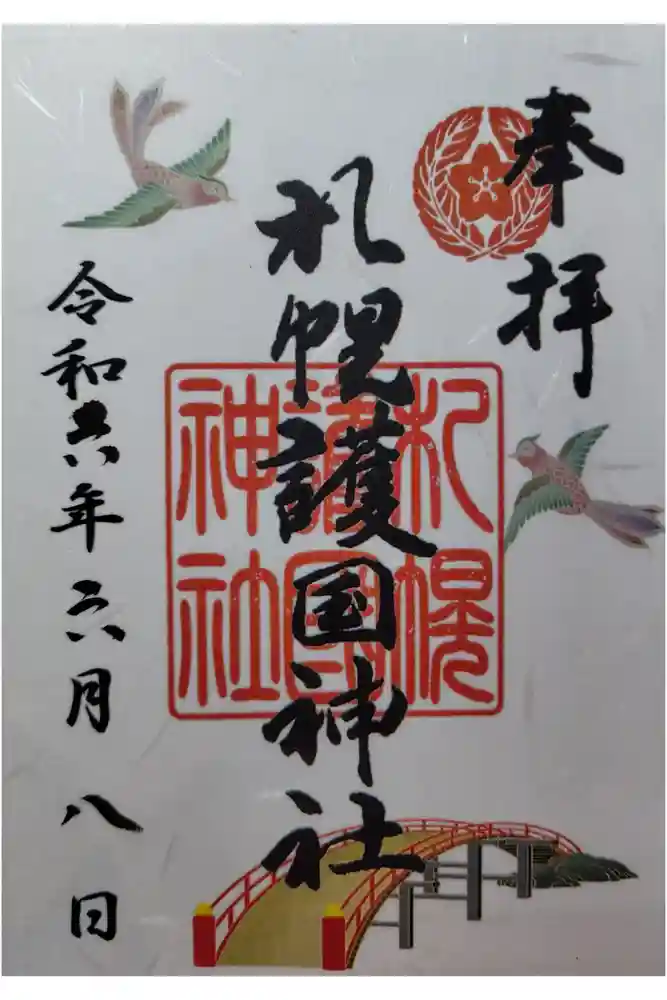 奉拝
札幌護国神社
札幌
護國
神社
令和六年六月八日